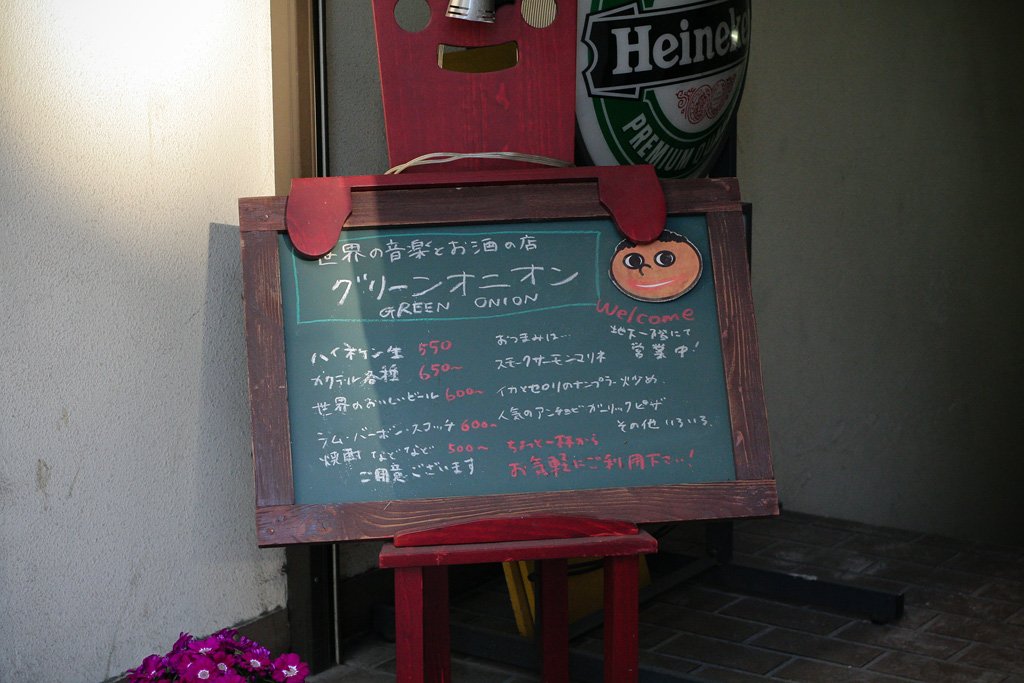 Heineken
PREMIUM
世界の音楽とお酒の店
グリーンオニオン
GREEN ONION
Welcome
地下一階にて
営業中!
ハイネケン生 550
カクテル各種 650~
世界のおいしいビール 600~
ラム・バーボン・スコッチ 600~
焼酎 などなど 500~
ご用意ございます
おつまみは…
スモークサーモンマリネ
イカとセロリのナンプラー炒め
人気のアンチョビガーリックピザ
その他 いろいろ
ちょっと一杯から
お気軽にご利用下さい!